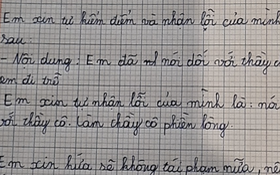 Em xin tự kiểm điểm và nhận lỗi của mình
sau:
- Nội dung: Em đã nói dối với thầy c
em đi trễ
Em xin tự nhân lỗi của mình là: nói
với thầy cô. Làm thầy cô phiền lòng.
Em xin hứa sẽ không tái phạm nữa, nế